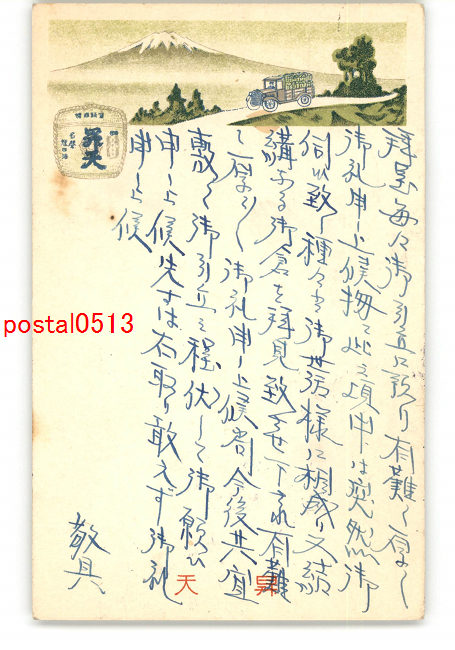 拝啓毎々御引立に預り有難く厚く
御礼申上候 扨て此之頃中は突然御
伺ひ致し種々と御世話様に相成り又結
構なる御倉を拝見致させ下され有難
く厚く御礼申上候 尚今後共宜
敷く御引立之程伏して御願ひ
申上候 先ずは右取り敢えず御礼
申上候
敬具
昇天
昇天
postal0513